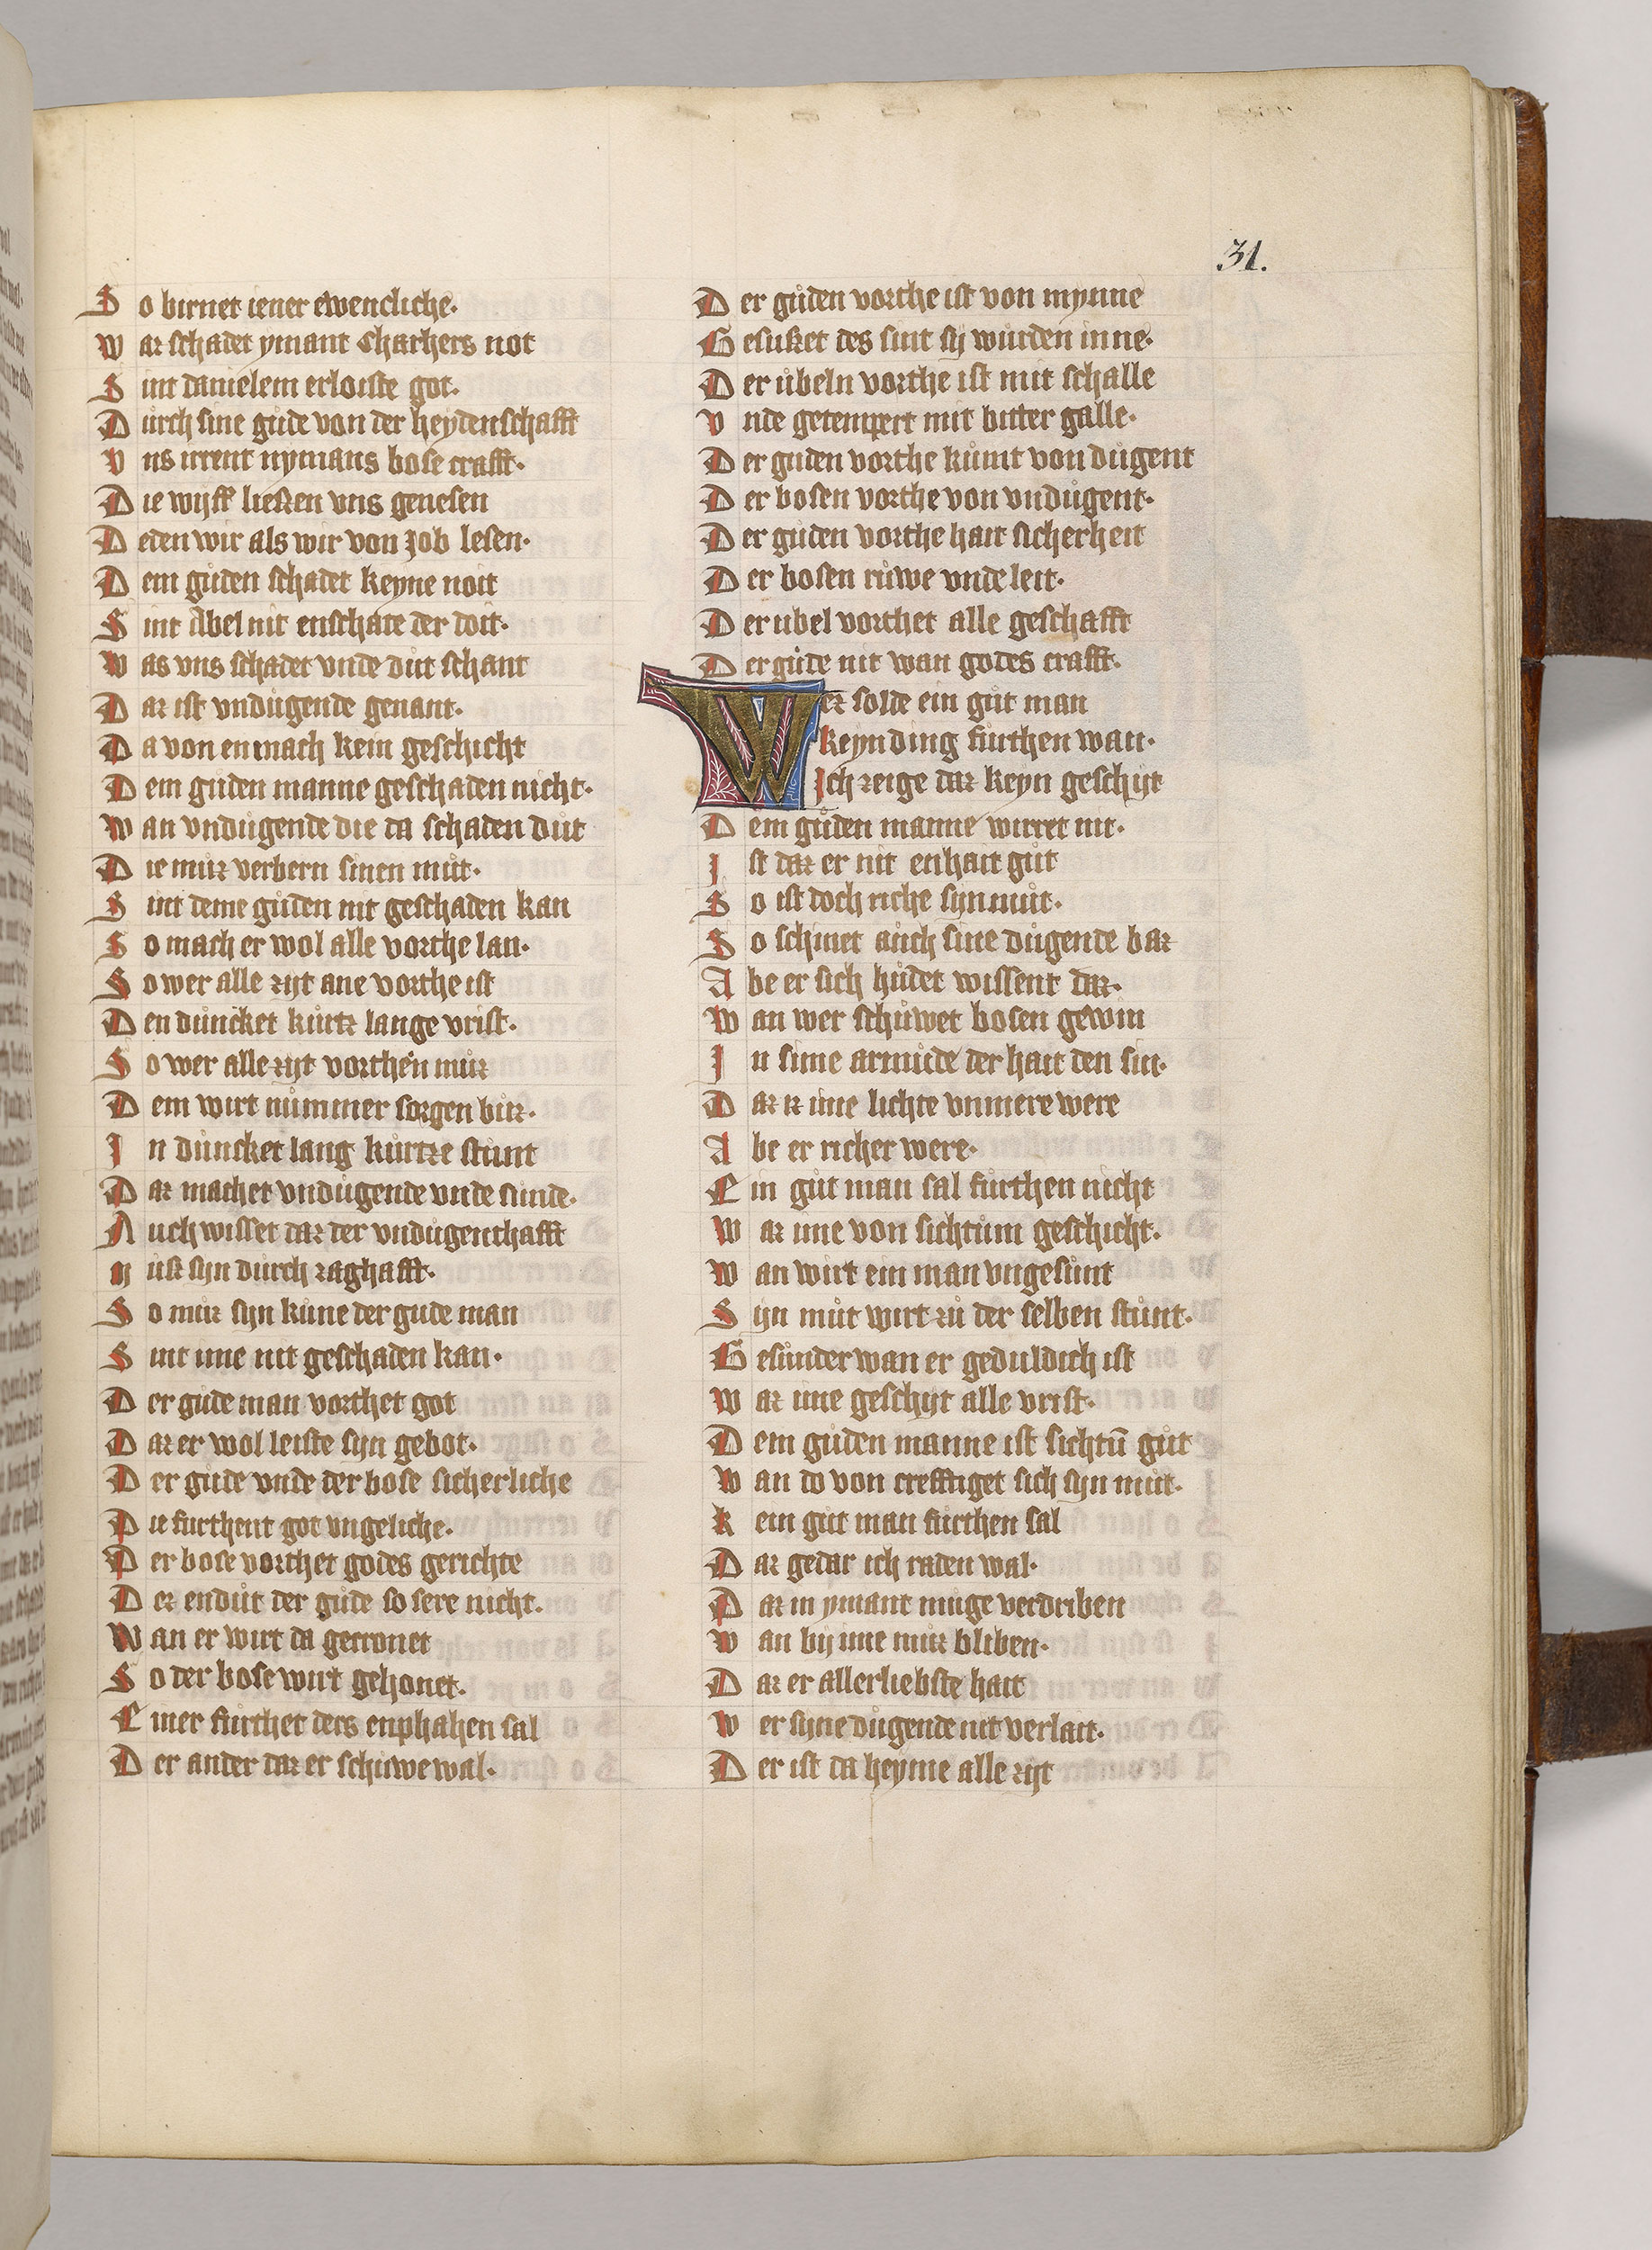 31.
So birnet iener ewencliche.
War schadet ymant Charhers not
Sint danielem erloiste got.
Durch sine gůde von der heydenschafft
Vns irrent nymans bose crafft.
Die wijff lieszen vns genesen
Deten wir als wir von Job lesen.
Dem gůden schadet keyne noit
Sint Abel nit enschate der doit.
Was vns schadet vnde důt schant
Dar ist vndůgende genant.
Da von enmach kein geschicht
Dem gůden manne geschaden nicht.
Wan vndůgende die da schaden důt
Die můz verbern sinen můt.
Sint deme gůden nit geschaden kan
So mach er wol alle vorthe lan.
So wer alle zijt ane vorthe ist
Den důncket kůrtz lange vrist.
So wer alle zijt vorthen můz
Dem wirt nůmmer sorgen bůz.
In důncket lang kůrtze stůnt
Daz machet vndůgende vnde sunde.
Auch wisset daz der vndůgenthafft
Můsz sijn důrch zaghafft.
So můz sijn kůne der gude man
Sint ime nit geschaden kan.
Der gůde man vorthet got
Daz er wol leiste sijn gebot.
Der gůde vnde der bose sicherliche
Die furthent got vngeliche.
Der bose vorthet godes gerichte
Der endůt der gůde so sere nicht.
Wan er wirt da gecronet
So der bose wirt gehonet.
Einer fůrthet ders enphahen sal
Der ander daz er schuwe wal.
Der gůden vorthe ist von mynne
Gesuszet des sint sij wůrden inne.
Der ůbeln vorthe ist mit schalle
Vnde getempert mit bitter galle.
Der guden vorthe kůmt von důgent
Der bosen vorthe von vndůgent.
Der gůden vorthe hait sicherheit
Der bosen růwe vnde leit.
Der ubel vorthet alle geschafft
Der gůde nit wan godes crafft.
Wez solde ein gůt man
keyn ding fůrthen wan.
Ich zeige daz keyn geschijt
Dem gůden manne wirret nit.
Ist daz er nit enhait gůt
So ist doch riche sijn můt.
So schinet aůch sine důgende baz
Abe er sich hůdet wissent daz.
Wan wer schůwet bosen gewin
In sime armůde der hait den sin.
Daz iz ime lichte vnmere were
Abe er richer were.
Ein gůt man sal fůrthen nicht
Waz ime von sichtům geschicht.
Wan wirt ein man vngesůnt
Sijn můt wirt zů der selben stůnt.
Gesůnder wan er geduldich ist
Waz ime geschijt alle vrist.
Dem gůden manne ist sichtū gůt
Wan do von crefftiget sich sijn můt.
Kein gůt man fůrthen sal
Daz gedar ich raden wal.
Daz in ymant můge verdriben
Wan bij ime můz bliben.
Daz er allerliebste hait
Wer sijne důgende nit verlait.
Der ist da heyme alle zijt